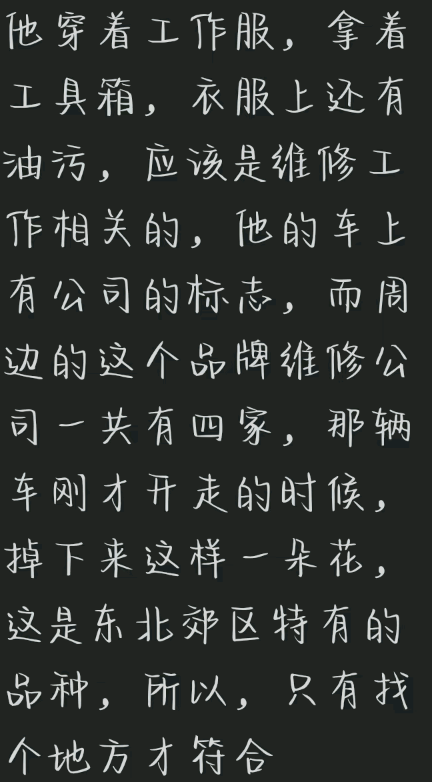 他穿着工作服，拿着
工具箱，衣服上还有
油污，应该是维修工
作相关的，他的车上
有公司的标志，而周
边的这个品牌维修公
司一共有四家，那辆
车刚才开走的时候，
掉下来这样一朵花，
这是东北郊区特有的
品种，所以，只有找
个地方才符合